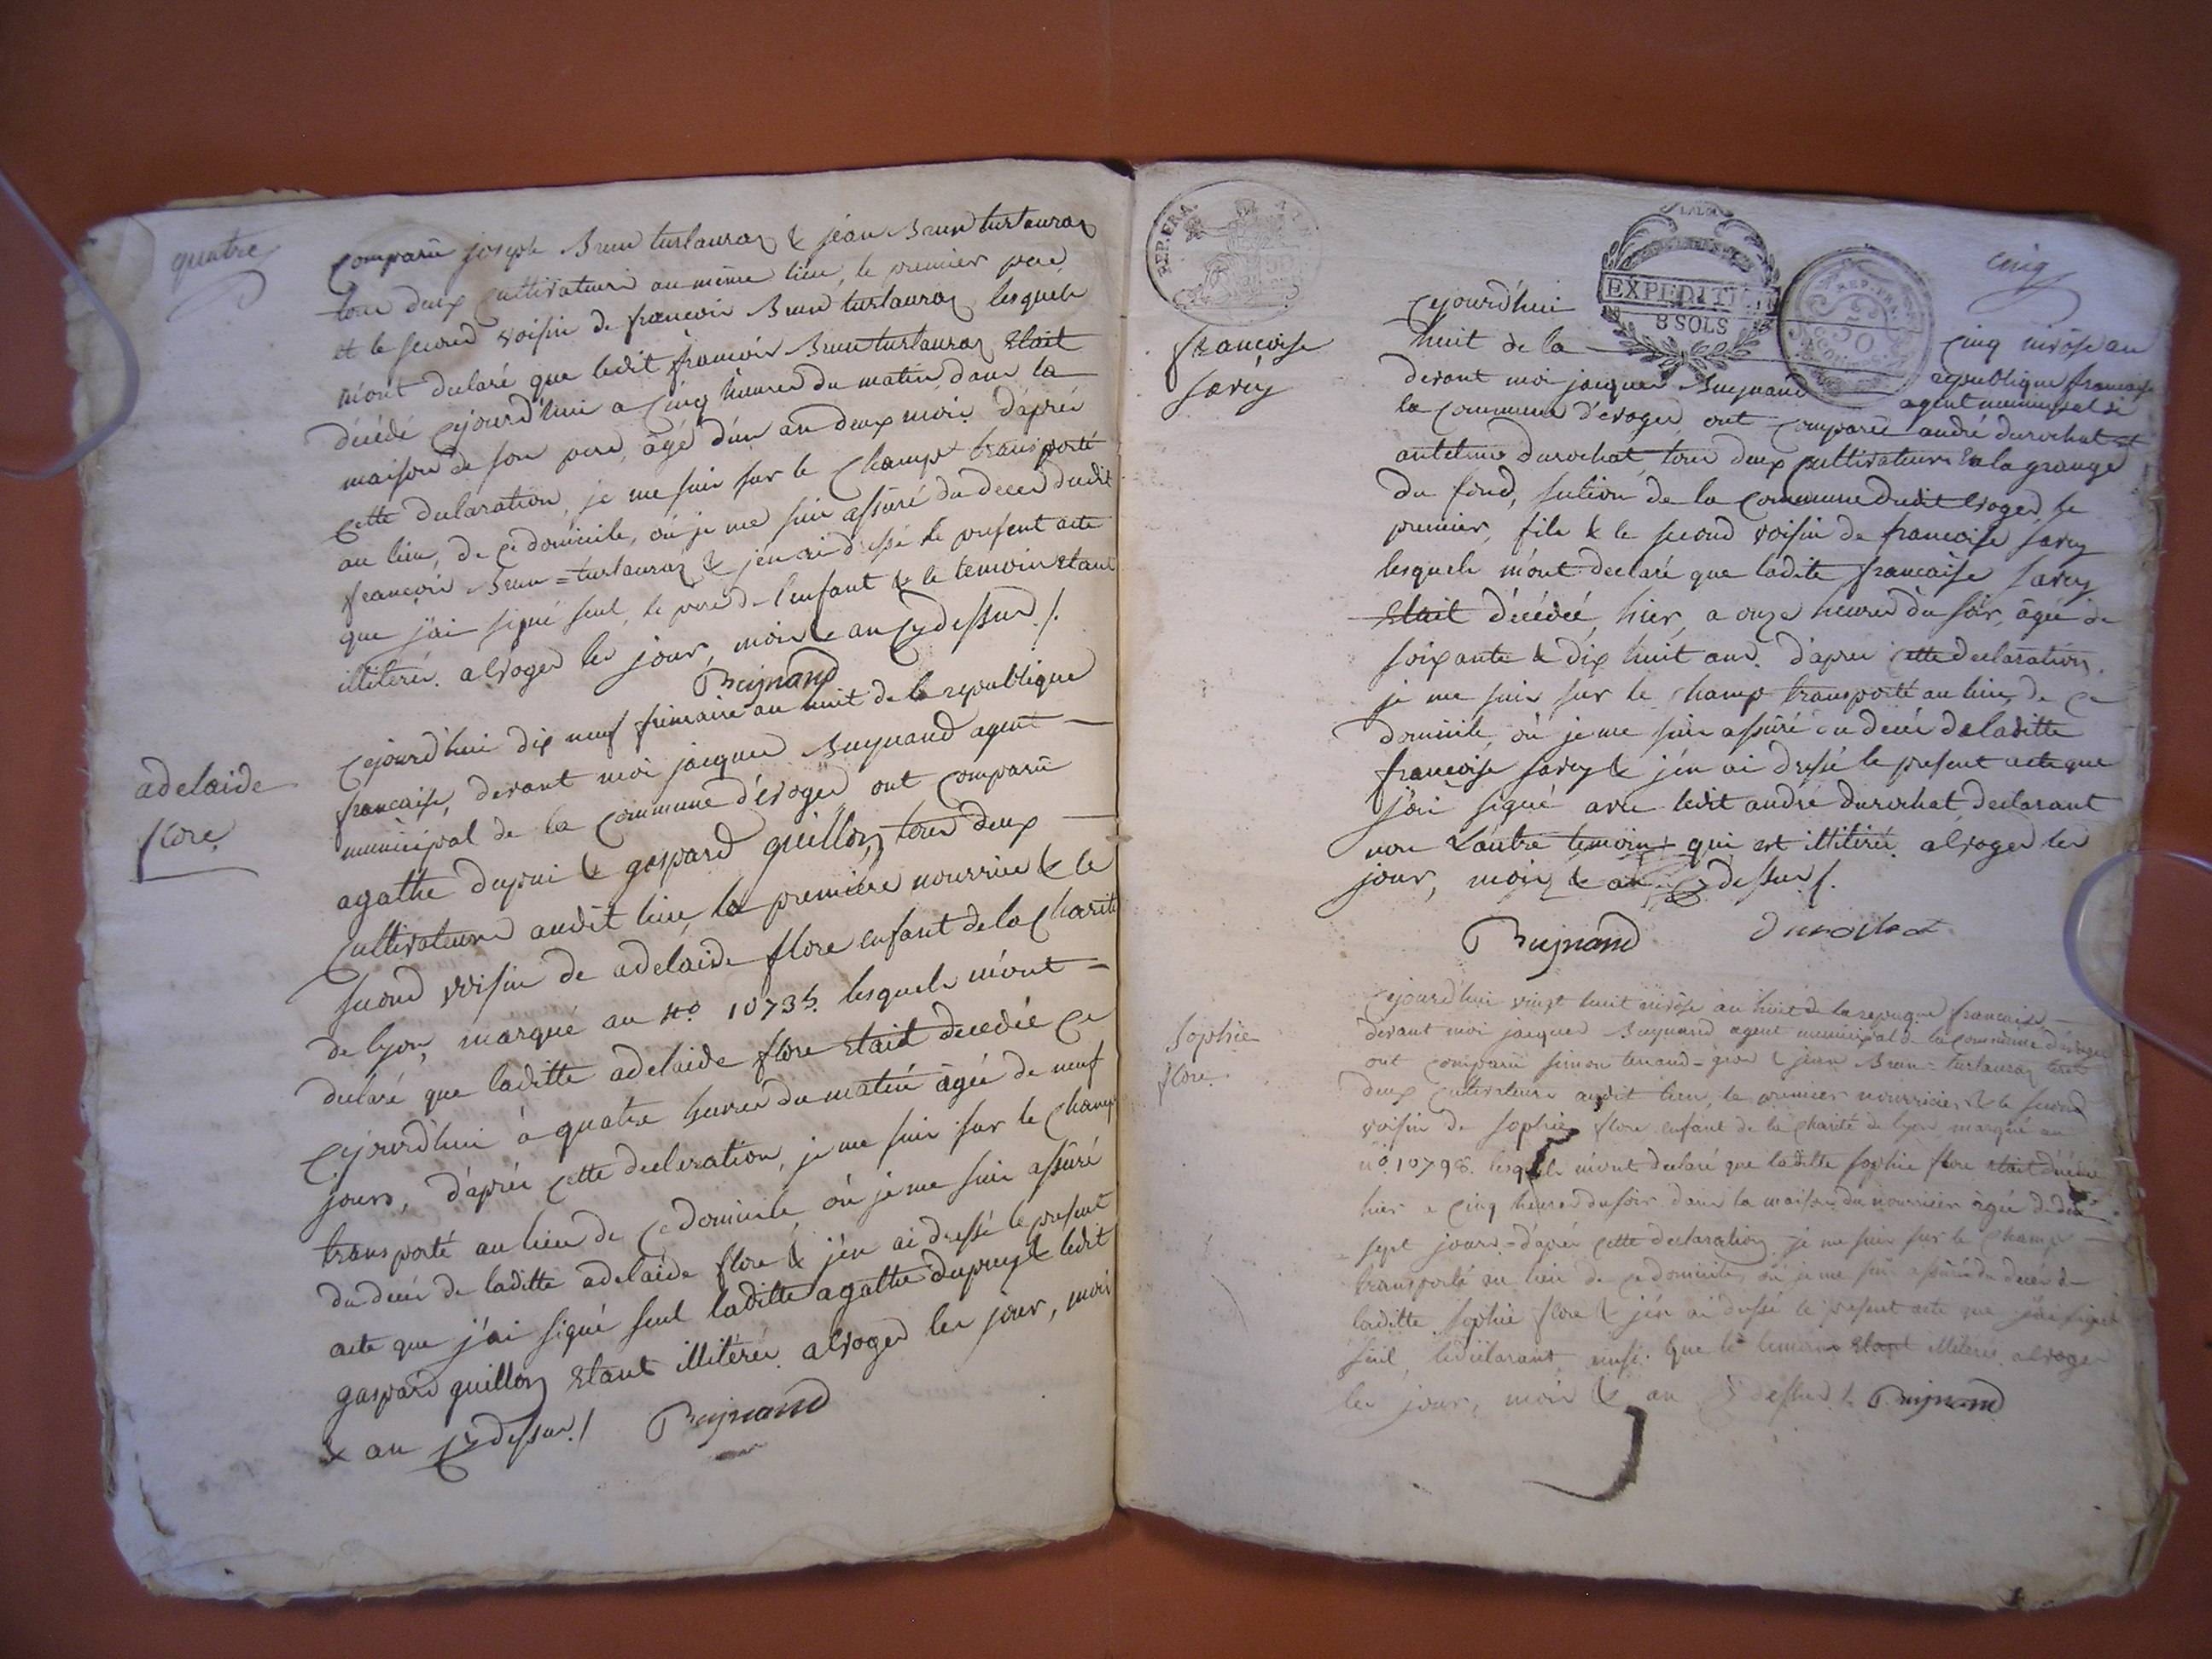 quatre
comparû joseph Brun turlauraz & jéan Brun turlauraz
tous deux cultivateurs au même lieu, le premier pere
et le second voisin de francois Brun turlauraz lesquels
m'ont declaré que ledit francois Brun turlauraz etait
décédé cejourd'hui a cinq heures du matin dans la
maison de son pere, âgé d'un an deux mois. d'aprés
cette declaration, je me suis sur le champ transporté
au lieu, de ce domicile, où je me suis assuré du deces dudit
francois Brun = turlauraz & j'en ai dressé le present acte
que j'ai signé seul, le pere de l'enfant & le temoin etant
illiterés. a l'voges les jour, mois & an cy dessus ./.
Buynand
adelaide
flore
Cejourd'hui dix neuf frimaire an huit de la republique
francaise, devant moi jacques Buynand agent
municipal de la commune d'évoges ont comparû
agathe dupui & gaspard guillon tous deux
cultivateurs audit lieu, la premiére nourrice & le
second voisin de adelaide flore enfant de la charité
de lyon, marqué au No. 10736. lesquels m'ont =
declaré que laditte adelaide flore etait decedée ce
cejourd'hui à quatre heures du matin âgée de neuf
jours, d'aprés cette declaration, je me suis sur le champ
transporté au lieu de ce domicile où je me suis assuré
du decés de laditte adelaide flore & j'en ai dressé le present
acte que j'ai signé seul laditte agathe dupuy & ledit
gaspard guillon etant illitérés. a l'voges les jour, mois
& an cy dessus ./ Buynand
REP. FRA.
EXPEDITION
8 SOLS
REP. FRA.
50
cinq
francoise
savey
cejourd'hui cinq nivôse an
huit de la republique francaise
devant moi jacques Buynand agent municipal de
la commune d'evoges ont comparû andré durochat et
antelme durochat, tous deux cultivateurs a la grange
du fond, section de la commune dudit evoges, le
premier, fils & le second voisin de francoise savey
lesquels m'ont declaré que ladite francaise savey
etait décédée, hier, a onze heures du soir, âgée de
soixante & dix huit ans. d'aprés cette declaration
je me suis sur le champ transporté au lieu, de ce
domicile, où je me suis assuré du decés de laditte
francoise savey & j'en ai dressé le present acte que
j'ai signé avec ledit andré durochat, declarant
non l'autre temoin qui est illitéré. a l'voges les
jour, mois & an cy dessus ./.
Buynand durochat
sophie
flore
Cejourd'hui vingt huit nivôse an huit de la repuque francaise
devant moi jacques Buynand agent municipal de la commune d'évoges
ont comparû simon tenand = gros & jean Brun = turlauraz tous
deux cultivateurs audit lieu, le premier nourricier & le second
voisin de sophie flore enfant de la charité de lyon marqué au
no. 10798. lesquels m'ont declaré que laditte sophie flore etait décédée
hier a cinq heures du soir dans la maison du nourricier âgée de dix
sept jours = d'aprés cette declaration je me suis sur le champ
transporté au lieu de ce domicile, où je me suis assuré du decés de
laditte sophie flore & j'en ai dressé le present acte que j'ai signé
seul, le declarant ainsi que le temoin etant illiterés. a l'voges
les jour, mois & an cy dessus ./. Buynand